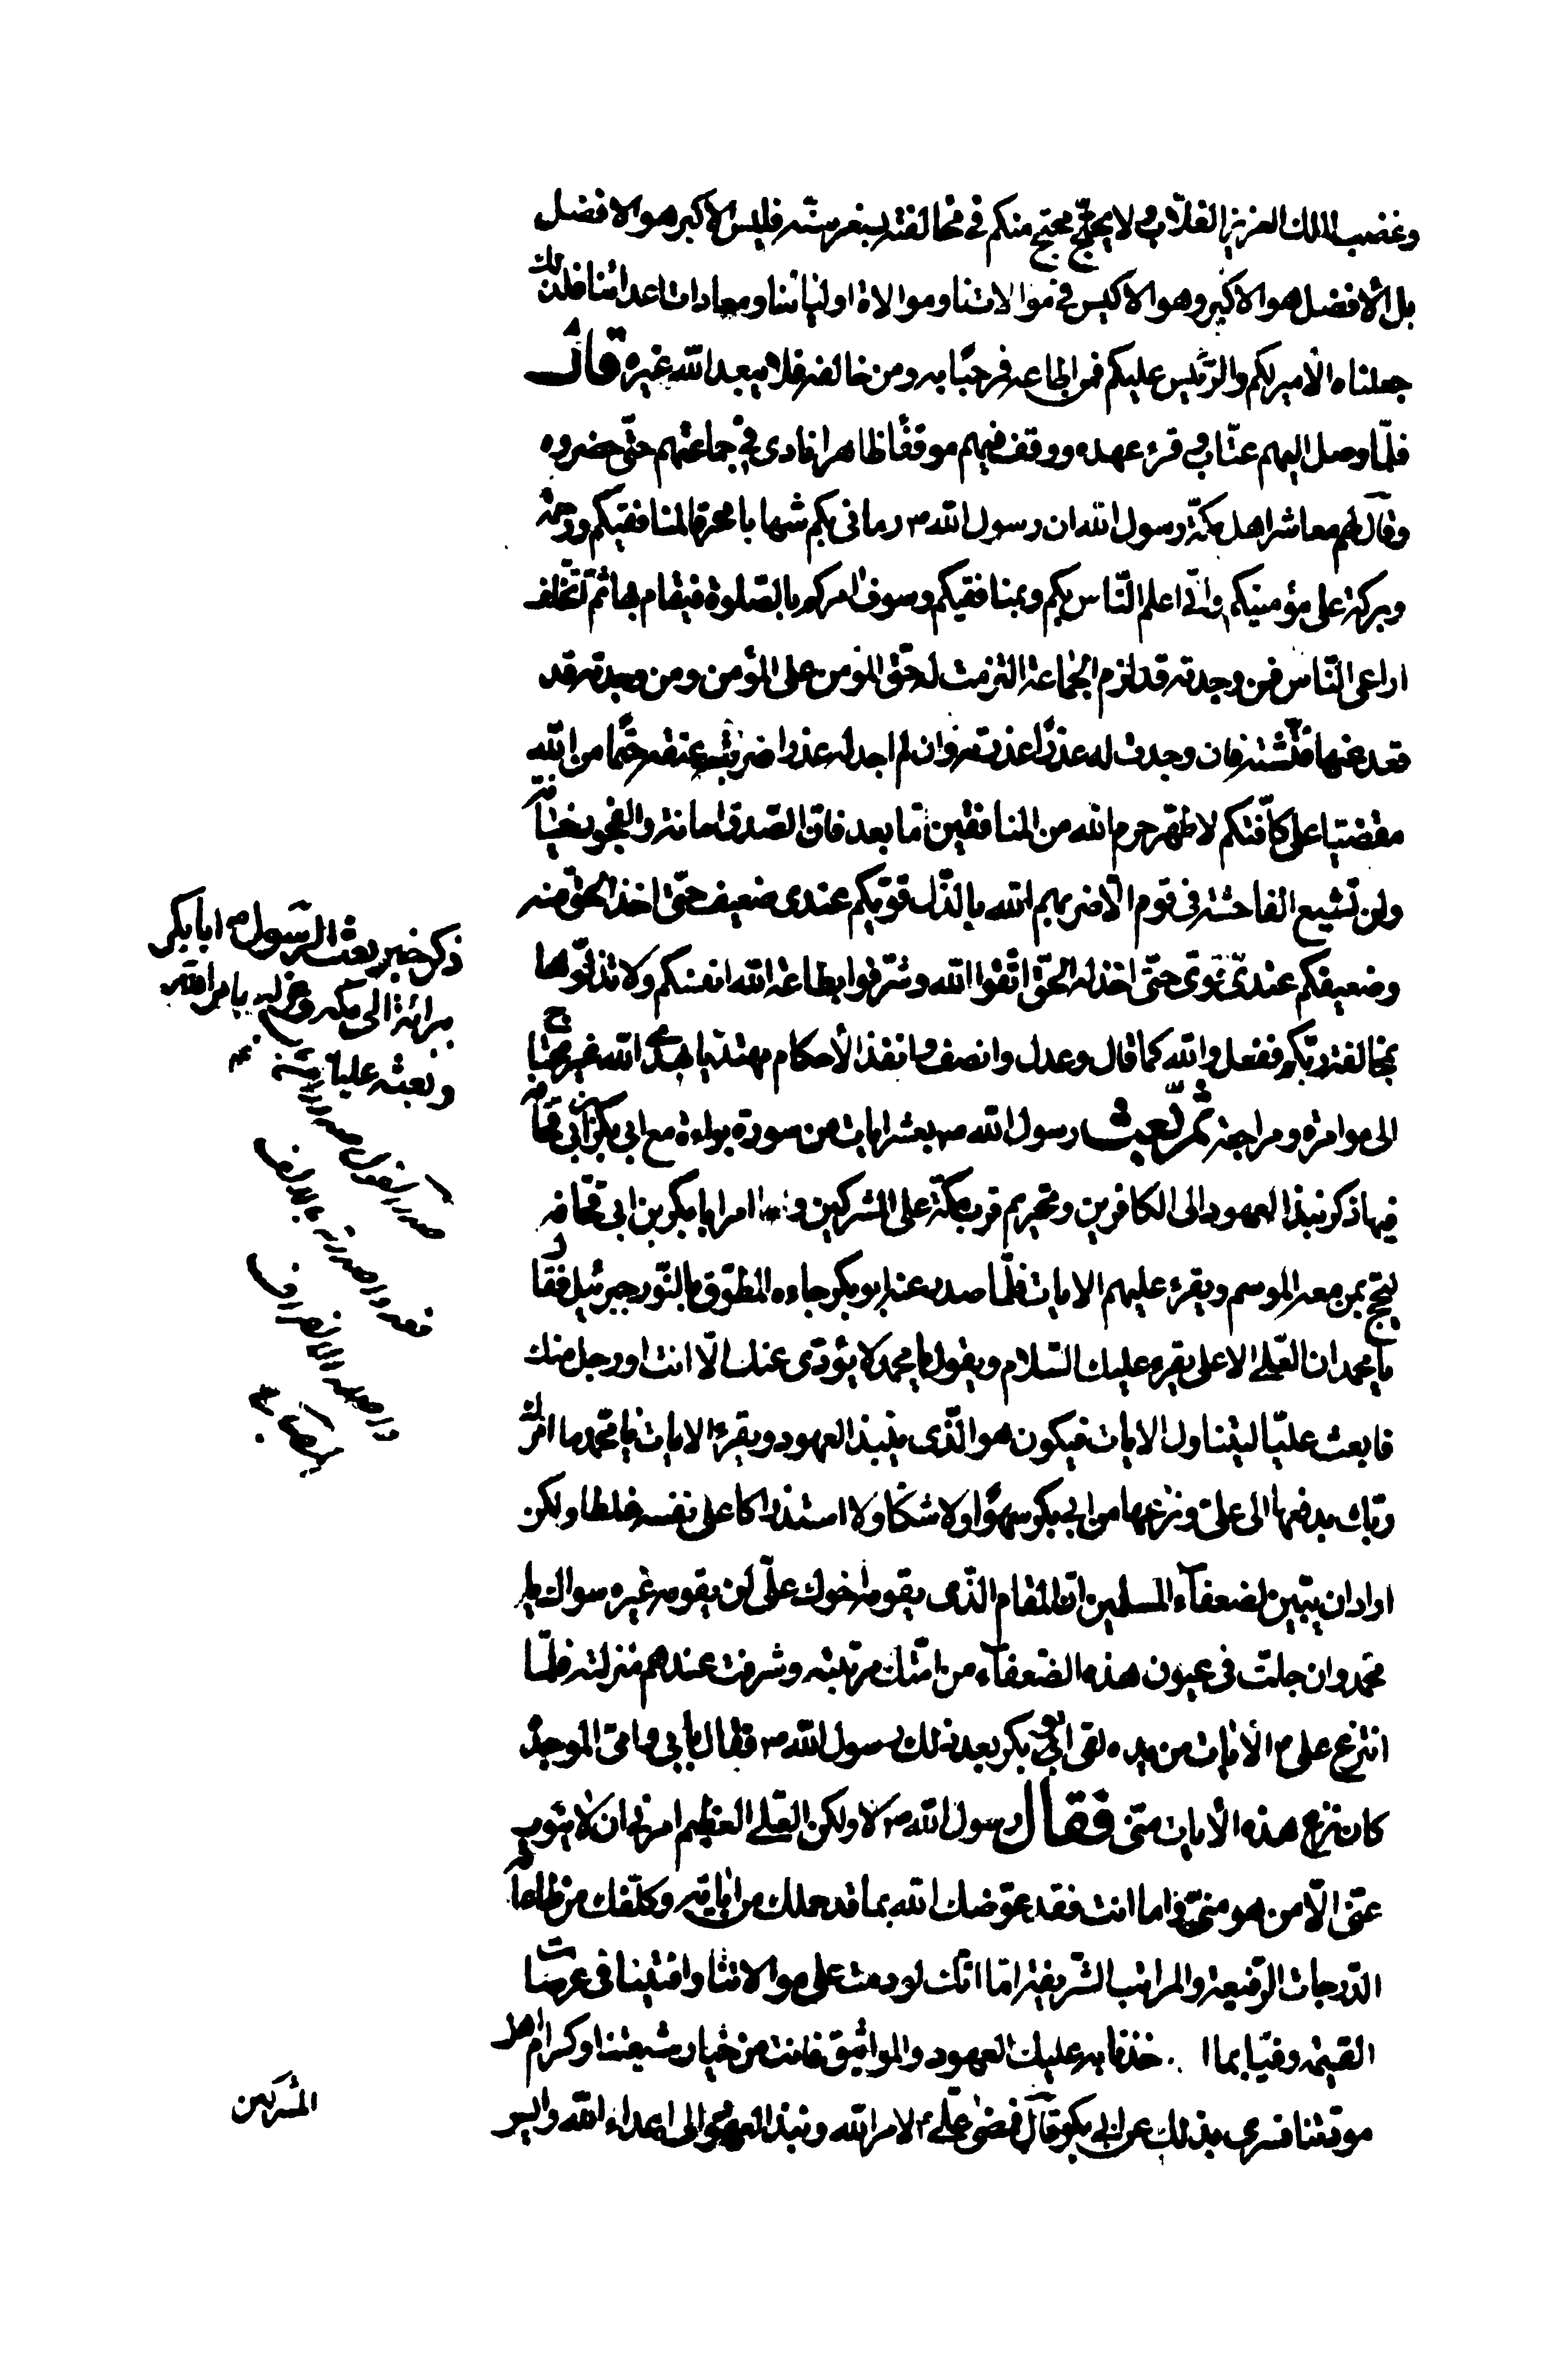 وغضب الملك العزيز الغلاب ولا يحتج محتج منكم في مخالفته بصغر سنه فليس الاكبر هو الافضل
بل الأفضل هو الاكبر وهو الاكيس في موالاتنا وموالاة اوليائنا ومعادات اعدائنا فلذلك
جعلناه الأمير لكم والرئيس عليكم فمن اطاعه فمرحبًا به ومن خالفه فلا يبعد الله غيره قال
فلمّا وصل اليهم عتاب وقرء عهده ووقف فيهم موقفًا ظاهرا نادى في جماعتهم حتّى حضروه
وقال لهم معاشر اهل مكّة رسول الله ان رسول الله ص رماني بكم شهابا محرقا لمنافقيكم ورحمة
وبركة على مؤمنيكم وانّي اعلم النّاس بكم وبمنافقيكم وسوف امركم بالصّلوة فيقام بها ثمّ اتخلف
اراعى النّاس فمن وجدته قد لزم الجماعة التزمت له حقّ المؤمن على المؤمن ومن وجدته قد
قعد عنها فتّشته فان وجدت له عذرًا عذرته وان لم اجد له عذرا ضربت عنقه حتمًا من الله
مقضيا على كافّتكم لاطهر حرم الله من المنافقين امّا بعد فان الصّدق امانة والفجور خيانة
ولن تشيع الفاحشة في قوم الّا ضربهم الله بالذّل قويّكم عندى ضعيف حتّى اخذ الحق منه
وضعيفكم عندى قوى حتّى اخذ له الحقّ اتّقوا الله وشرّفوا بطاعة الله انفسكم ولا تذلّوها
بمخالفة ربّكم ففعل والله كما قال وعدل وانصف وانفذ الأحكام مهتديا بهدى الله غير محتاج
الى موامرة ومراجعة ثمّ بعث رسول الله ص بعشر ايات من سورة براءة مع ابي بكر بن ابي قحافه
فيها ذكر نبذ العهود الى الكافرين وتحريم قرب مكّة على المشركين و امر ابا بكر بن ابي قحافه
ليحج بمن معه الموسم ويقرء عليهم الايات فلمّا صدر عنه ابو بكر جاءه المطوّق بالنّور جبرئيل فقال
يا محمد ان العلي الاعلى يقرء عليك السّلام ويقول يا محمد لا يؤدّى عنك الّا انت او رجل منك
فابعث عليّا ليتناول الايات فيكون هو الّذى ينبذ العهود ويقرء الايات يا محمّد ما امرك
ربّك بدفعها الى علىّ ونزعها من ابي بكر سهوًا ولا شكّا ولا استدراكا على نفسه غلطا ولكن
اراد ان يبيّن لضعفاء المسلمين انّ المقام الّذى يقومه اخوك علىّ لن يقومه غيره سواك يا
محمّد وان جلّت في عيون هذه الضّعفاء من امّتك مرتبته وشرفت عندهم منزلته فلمّا
انتزع على ع الأيات من يده لقى ابو بكر بعد ذلك رسول الله ص فقال بابي وامّى الموجدة
كان نزع هذه الأيات منّى فقال رسول الله ص لا ولكن العليّ العظيم امرنى ان لا ينوب
عنّى الّا من هو منّى واما انت فقد عوّضك الله بما قد حملك من اياته وكلّفك من طاعاته
الدّرجات الرّفيعة والمراتب الشّريفة امّا انّك لو دمت على موالاتنا وافيتنا في عرصات
القيمة وفيّا بما خذنا به عليك العهود والمواثيق فانت من خيار شيعتنا وكرام اهل
مودّتنا فسرى بذلك عن ابي بكر قال فمضى علىّ ع لامر الله ونبذ العهود الى اعداء الله وايس
ذكر خبر بعث الرّسول ص ابا بكر
برائة الى مكه وعزله بامر الله
وبعثه عليا
المشركين